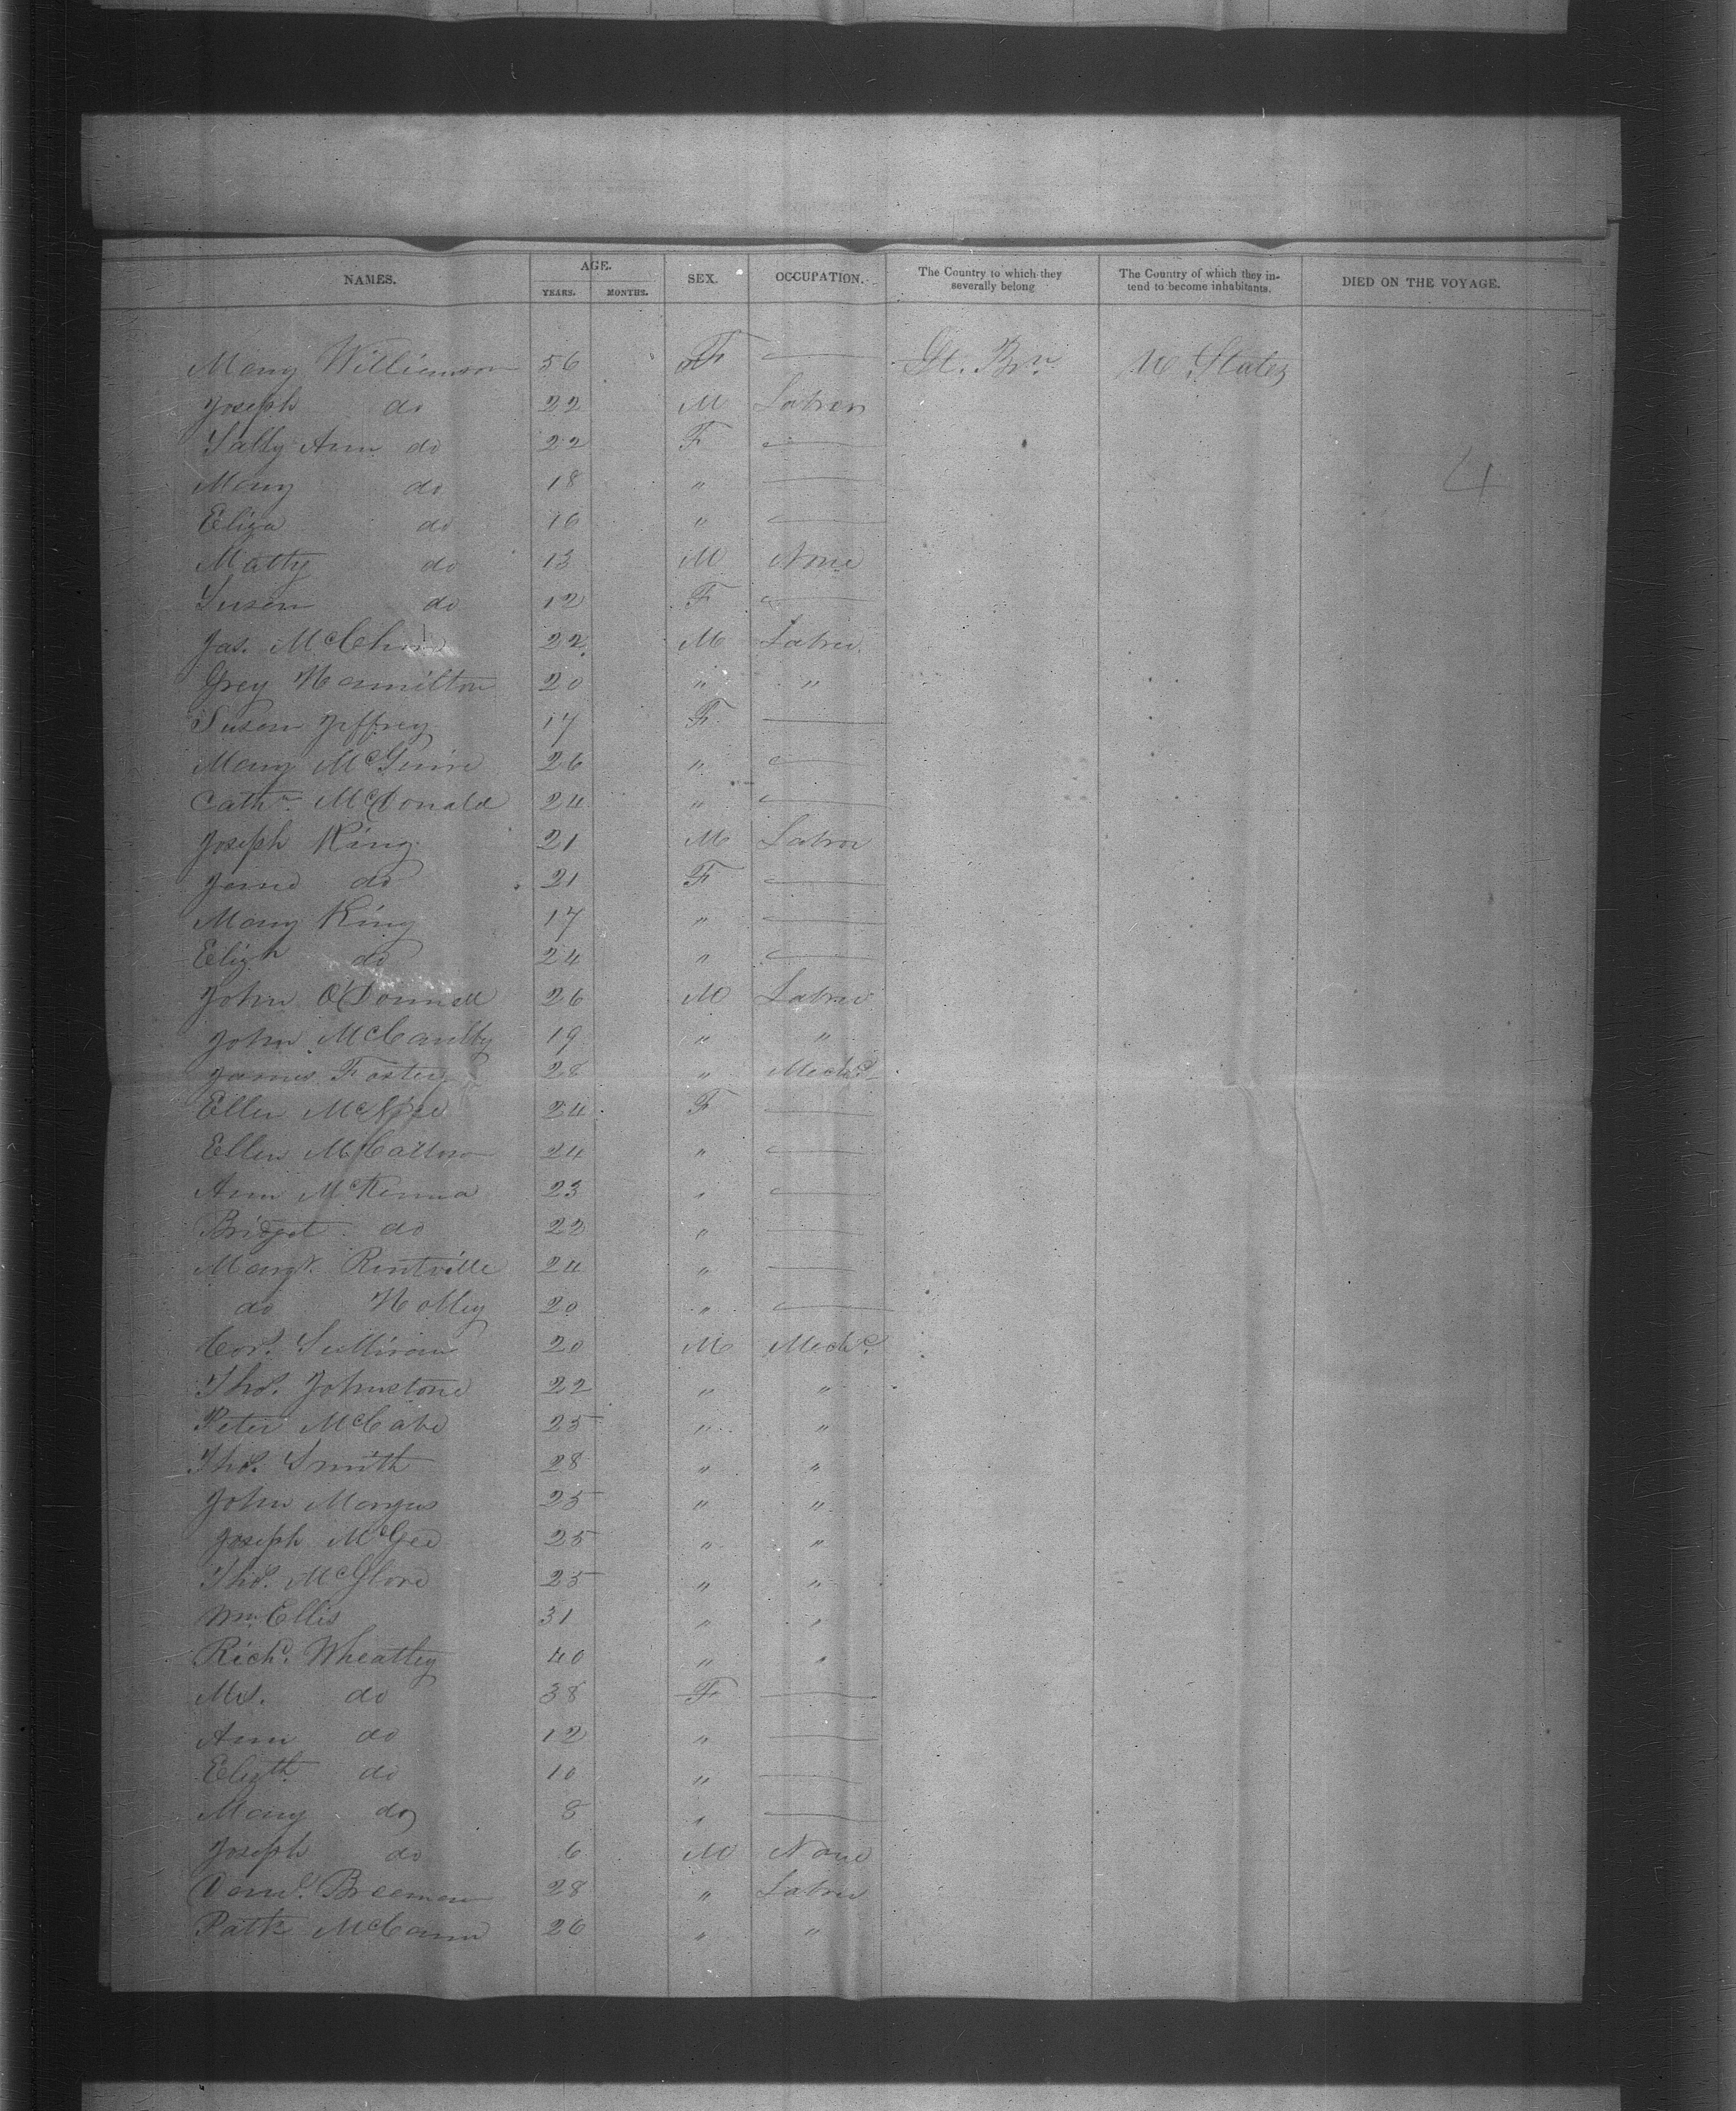 NAMES. AGE. SEX. OCCUPATION. The Country to which they severally belong The Country of which they intend to become inhabitants. DIED ON THE VOYAGE.
YEARS. MONTHS.
Mary Williamson 56 F — Gt. Brn. U States
Joseph do 22 M Labror
Sally Ann do 22 F —
4
Mary do 18 " —
Eliza do 16 " —
Matty do 13 M None
Susan do 12 F —
Jas. 22 M Labror
Grey Hamilton 20 " "
Susan Jeffrey 17 F —
Mary McGuire 26 " —
Cathe. McDonald 24 " —
Joseph King 21 M Labror
Jane do 21 F —
Mary King 17 " —
Elizh do 24 " —
John O'Donnell 26 M Labror
John McCaulty 19 " "
James Foster 28 " Mechc.
Ellen McNice 24 F —
Ellen 24 " —
Ann McKenna 23 " —
Bridget do 22 " —
Margt. Rentville 24 " —
do Holley 20 " —
Cors. Sullivan 20 M Mechc.
Thos. Johnstone 22 " "
Peter McCabe 25 " "
Thos. Smith 28 " "
John 25 " "
Joseph McGee 25 " "
Thos. McGlone 25 " "
Wm. Ellis 31 " "
Richd. Wheatley 40 " "
Mrs. do 38 F —
Ann do 12 " —
Elizth. do 10 " —
Mary do 8 " —
Joseph do 6 M None
Danl. 28 " Labror
Patk McCann 26 " "